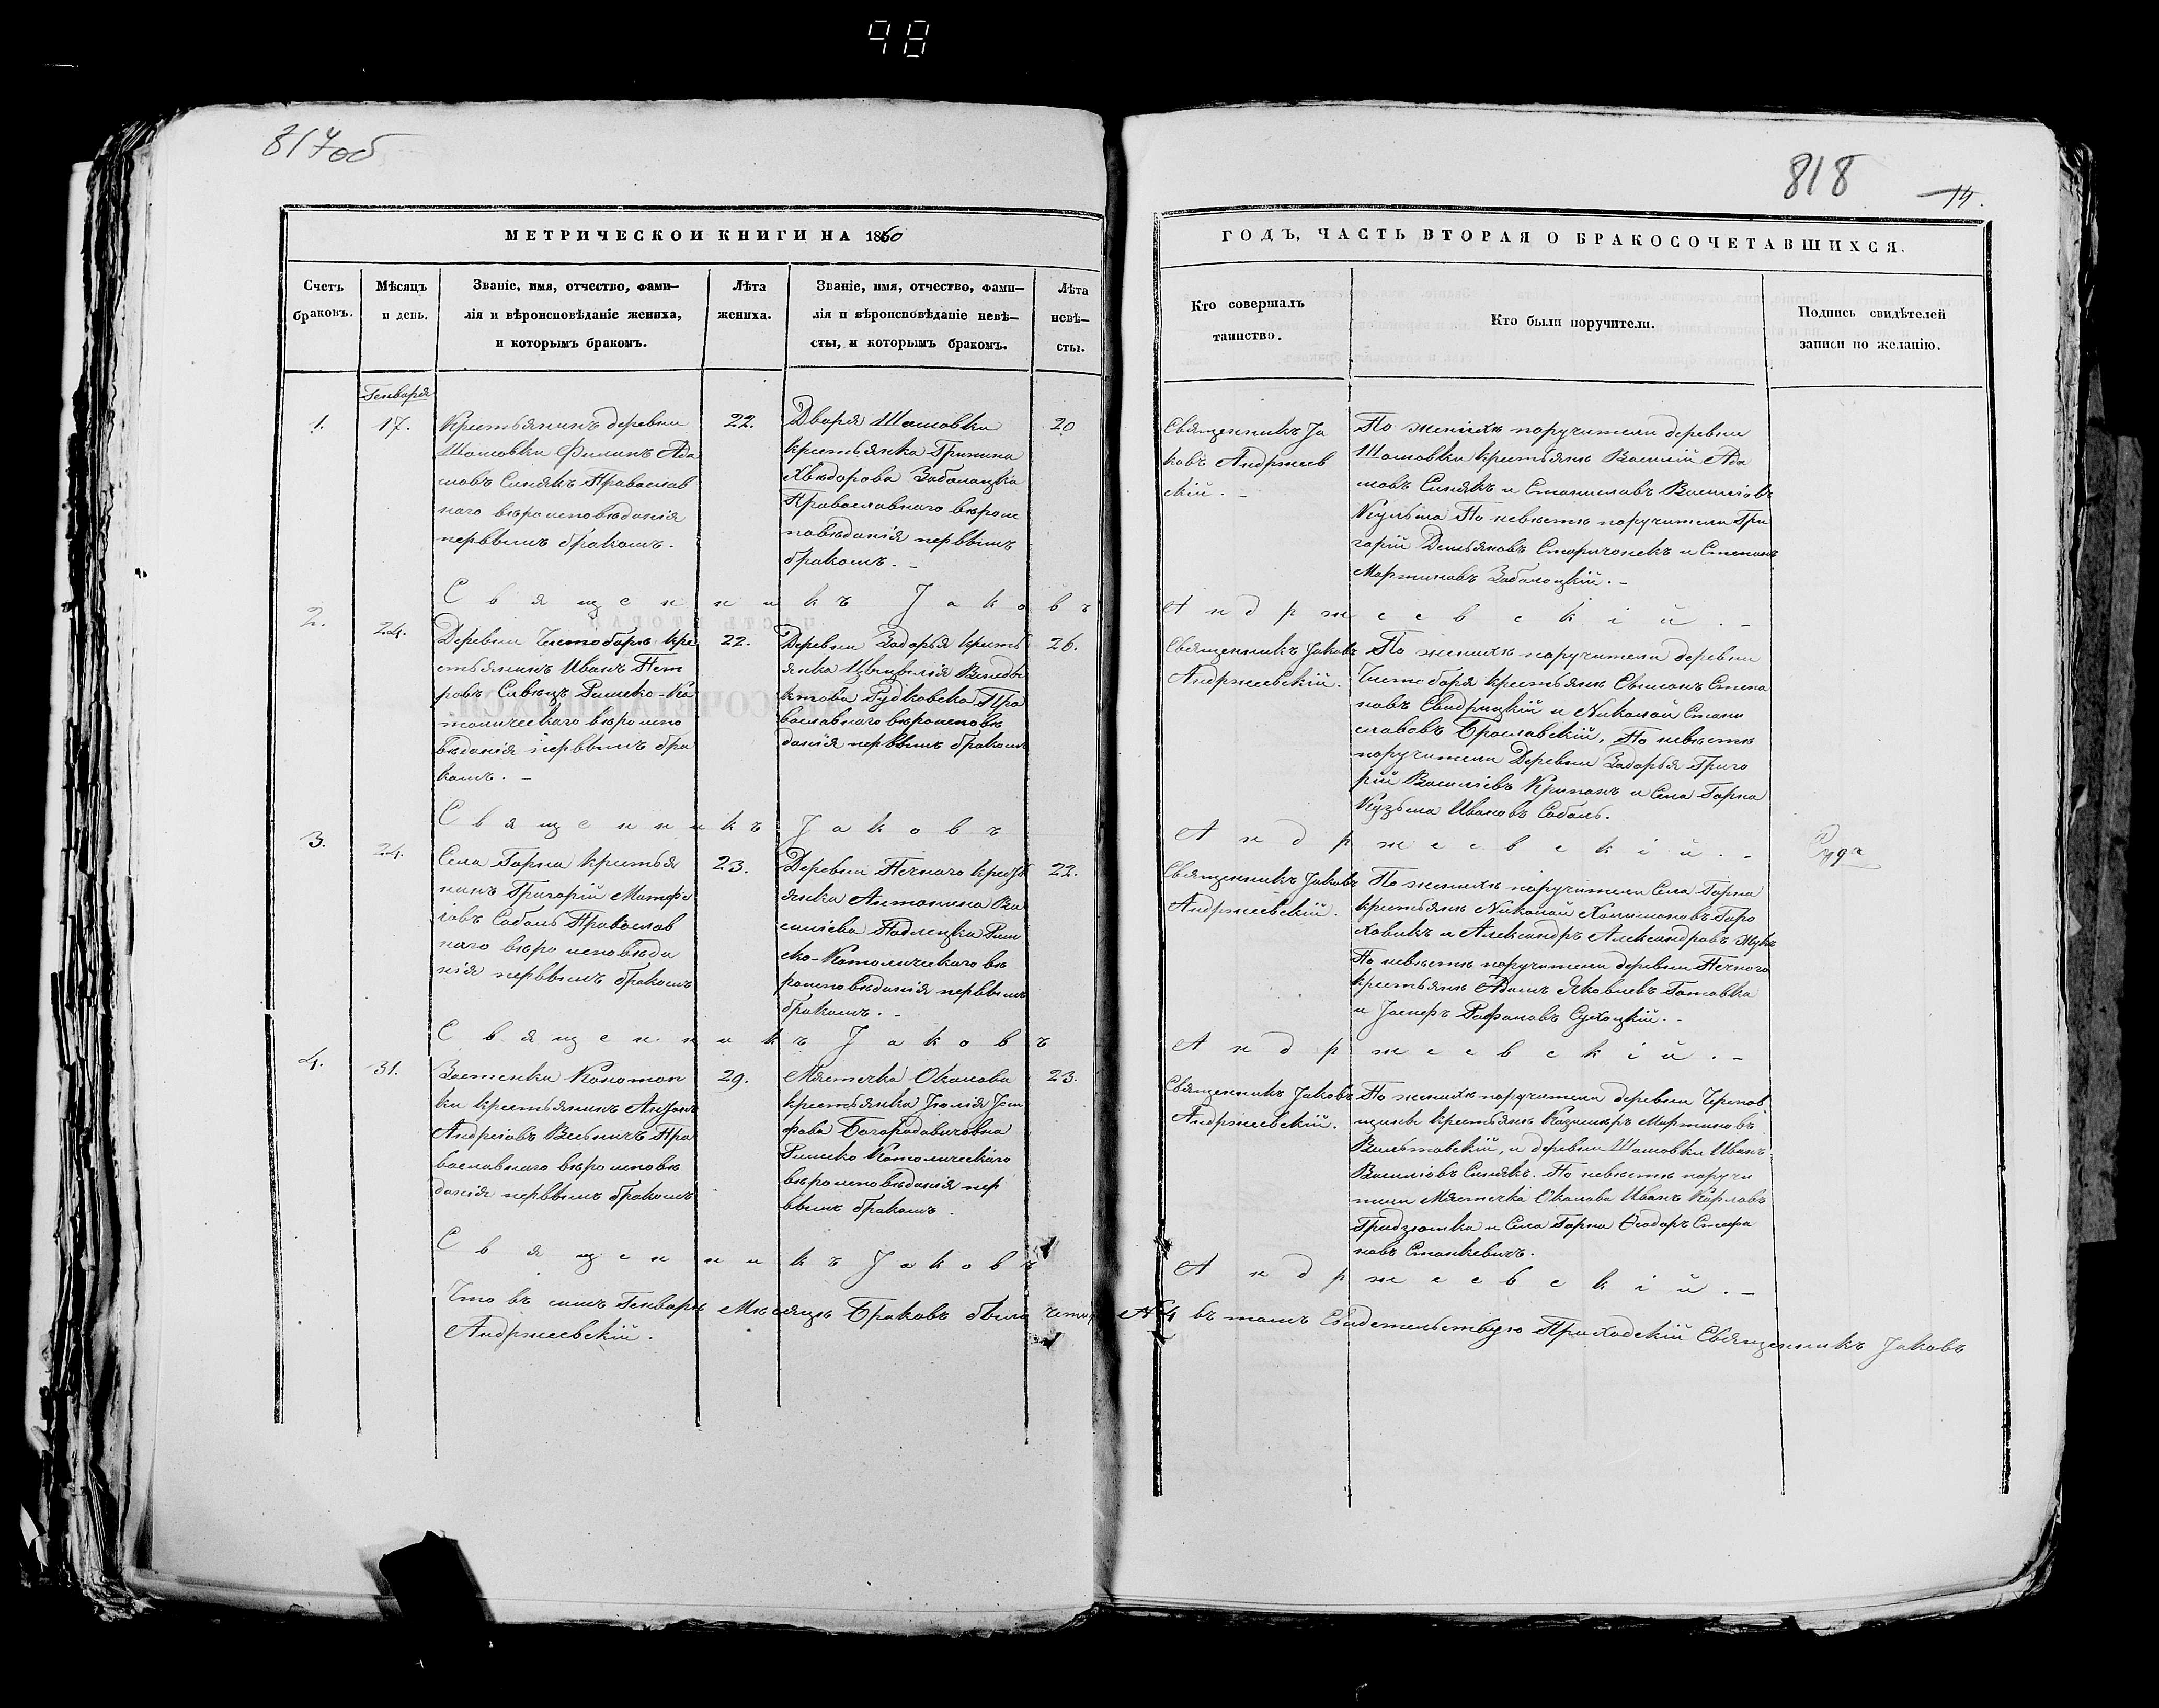 98
817 об
818
14.
МЕТРИЧЕСКОЙ КНИГИ НА 1860
ГОДЪ, ЧАСТЬ ВТОРАЯ О БРАКОСОЧЕТАВШИХСЯ.
Счетъ браковъ.
Мѣсяцъ и день.
Званіе, имя, отчество, фами-
лія и вѣроисповѣданіе жениха,
и которымъ бракомъ.
Лѣта жениха.
Званіе, имя, отчество, фами-
лія и вѣроисповѣданіе невѣ-
сты, и которымъ бракомъ.
Лѣта невѣ-
сты.
Кто совершалъ
таинство.
Кто были поручители.
Подпись свидѣтелей
записи по желанію.
Генваря
1.
17.
Крестьянинъ деревни
Шашовки Филипъ Ада
мовъ Синякъ Православ
наго вѣроисповѣданія
первымъ бракомъ.
22.
Двора Шашовки
крестьянка
Заболацка
Православнаго вѣроис
повѣданія первымъ
бракомъ. -
20
Священникъ Іа
ковъ Андржеев
скій. -
По женихѣ поручители деревни
Шашовки крестьяне Василій Ада
мовъ Синякъ и Станиславъ Василіовъ
Кульша По невѣстѣ поручители Гри
горій Демьяновъ и Степанъ
Мартиновъ Заболоцкій. -
Священникъ Іаковъ Андржеевскій. -
2.
24.
Деревни Чистобаръ кре
стьянинъ Иванъ Пет
ровъ Римско-Ка
толическаго вѣроиспо
вѣданія первымъ бра
комъ. -
22.
Деревни Задорья кресть
янка Венеды
ктова Рудковска Пра
вославнаго вѣроисповѣ
данія первымъ бракомъ
26.
Священникъ Іаковъ
Андржеевскій.
По женихѣ поручители деревни
Чистобаря крестьяне Сымонъ Степа
новъ Свидрицкій и Николай Стани
славовъ Браславскій, По невѣстѣ
поручители Деревни Задорья Григо
рій Василіевъ и Села Горна
Кузьма Ивановъ Соболь.
Священникъ Іаковъ Андржеевскій. -
3.
24.
Села Горна крестья
нинъ Григорій Матфе
іовъ Соболь Православ
наго вѣроисповѣда
нія первымъ бракомъ
23.
Деревни Печнаго кресть
янка Антонина Ва
силіева Рим
ско-Католическаго вѣ
роисповѣданія первымъ
бракомъ. -
22.
Священникъ Іаковъ
Андржеевскій.
По женихѣ поручители Села Горна
крестьяне Николай Горо
ховикъ и Александръ Александровъ Жукъ
По невѣстѣ поручители деревни Печного
крестьяне Адамъ Яковлевъ Готовка
и Іосифъ Рафаловъ Сухоцкій. -
Священникъ Іаковъ Андржеевскій. -
4.
31.
Застенка Конотоп
ки крестьянинъ Антонъ
Андреіовъ Пра
вославнаго вѣроисповѣ
данія первымъ бракомъ
29.
Мястечка Околова
крестьянка Іюлія Іоси
фова Богородовичовна
Римско Католическаго
вѣроисповѣданія пер
вымъ бракомъ.
23.
Священникъ Іаковъ
Андржеевскій.
По женихѣ поручители деревни
крестьяне Казимеръ Мартиновъ
и деревни Шашовки Иванъ
Василіовъ Синякъ. По невѣстѣ поручи
тели Мястечка Околова Иванъ Карловъ
Гридзюшка и Села Горна Ѳеодоръ Стефа
новъ Станкевичъ.
Священникъ Іаковъ Андржеевскій. -
Что въ семъ Генварѣ Мѣсяцѣ Браковъ было четыре № 4 въ томъ Свидетельствую Приходскій Священникъ Іаковъ
Андржеевскій.